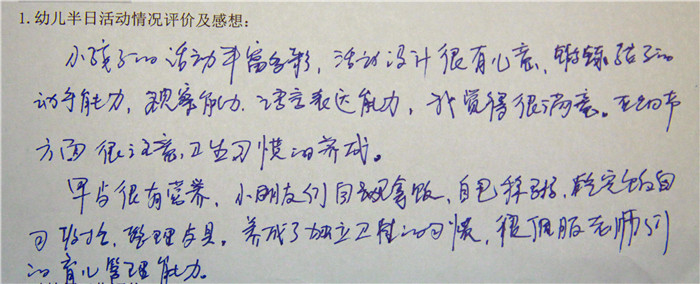 1.幼儿半日活动情况评价及感想：
小孩子的活动丰富多彩，活动设计很有心意，锻炼孩子的
动手能力，观察能力，语言表达能力，我觉得很满意。
方面很注意卫生习惯的养成。
早点很有营养，小朋友们自己拿饭，自己
收拾，整理桌具。养成了独立卫生的习惯，很佩服老师们
的育儿管理能力。